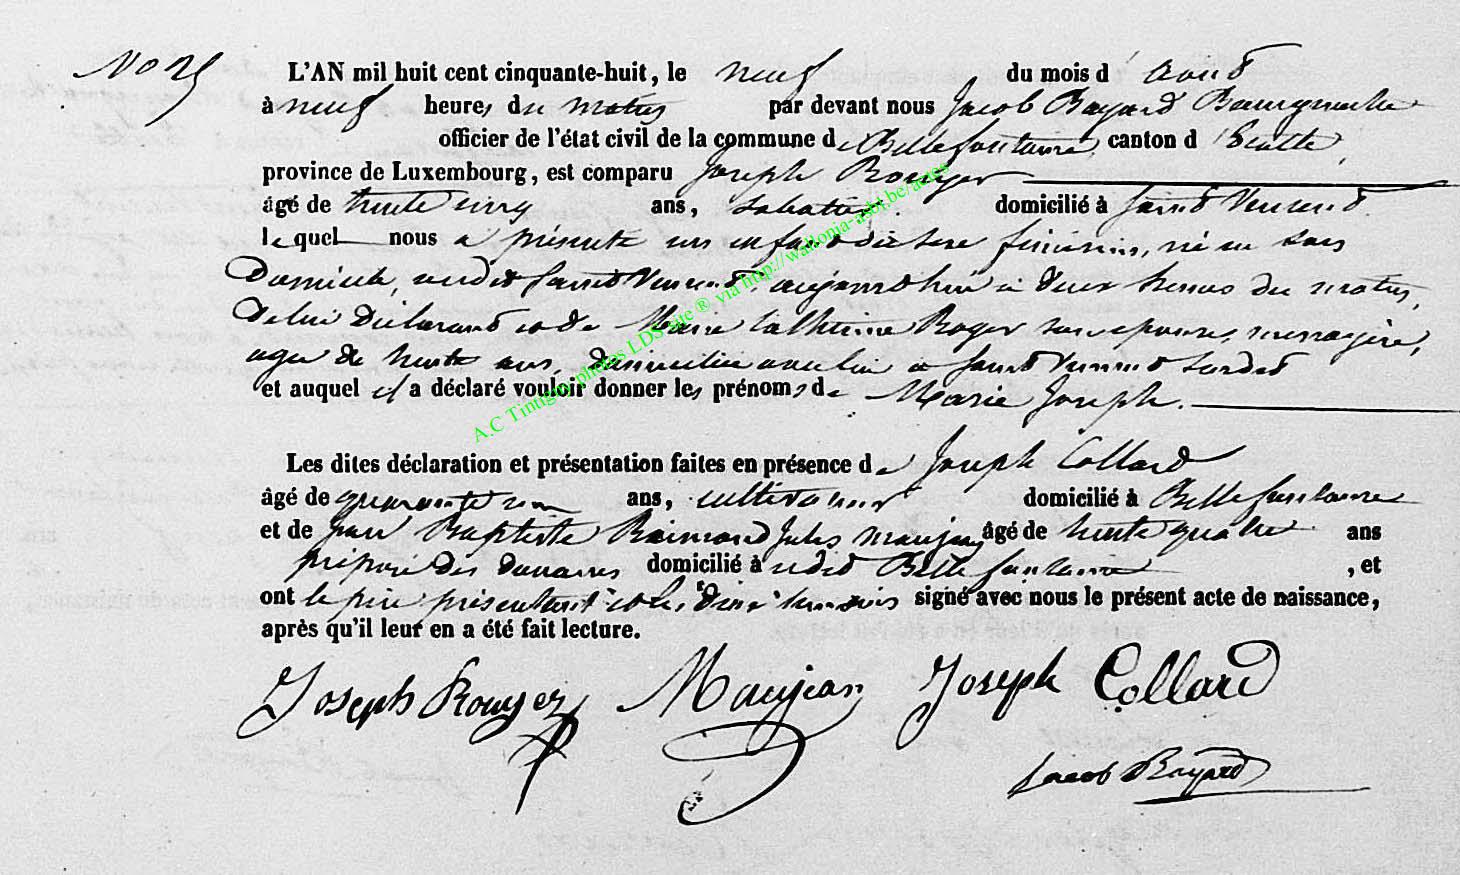 No 25
L'AN mil huit cent cinquante-huit, le neuf du mois d' Août
à neuf heures du matin par devant nous Jacob Bayard Bourgmestre
officier de l'état civil de la commune de Bellefontaine, canton d'Etalle,
province de Luxembourg, est comparu Joseph Rouyer
âgé de trente cinq ans, sabotier. domicilié à Saint Vincent.
lequel nous a présenté un enfant du sexe féminin, né en son
Domicile, audit Saint Vincent, aujourd'hui à deux heures du matin,
De lui Déclarant et de Marie Catherine Roger son épouse, ménagère,
agée de trente ans, domiciliée avec lui à Saint Vincent susdit
et auquel il a déclaré vouloir donner les prénoms de Marie Joseph.
Les dites déclaration et présentation faites en présence de Joseph Collard
âgé de quarante un ans, cultivateur domicilié à Bellefontaine
et de Jean Baptiste Raimond Jules Maujean âgé de trente quatre ans
préposé des douanes domicilié à udit Bellefontaine, et
ont le père présentant et les deux témoins signé avec nous le présent acte de naissance,
après qu'il leur en a été fait lecture.
Joseph Rouyer Maujean Joseph Collard
Jacob Bayard
A.C Tintigny photos LDS site ® via http://wallonia-asbl.be/actes